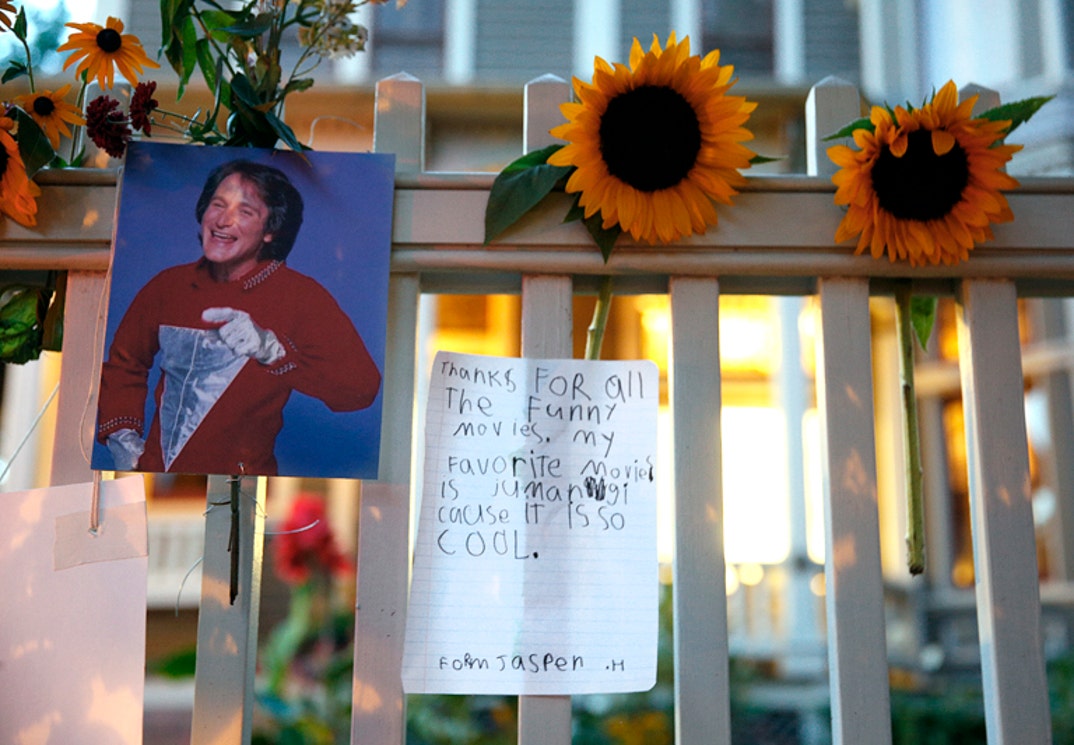 Thanks FOR all
The Funny
movies. my
FAVORITE movies
is jumangi
cause IT is so
COOL.
FORM Jaspen .H